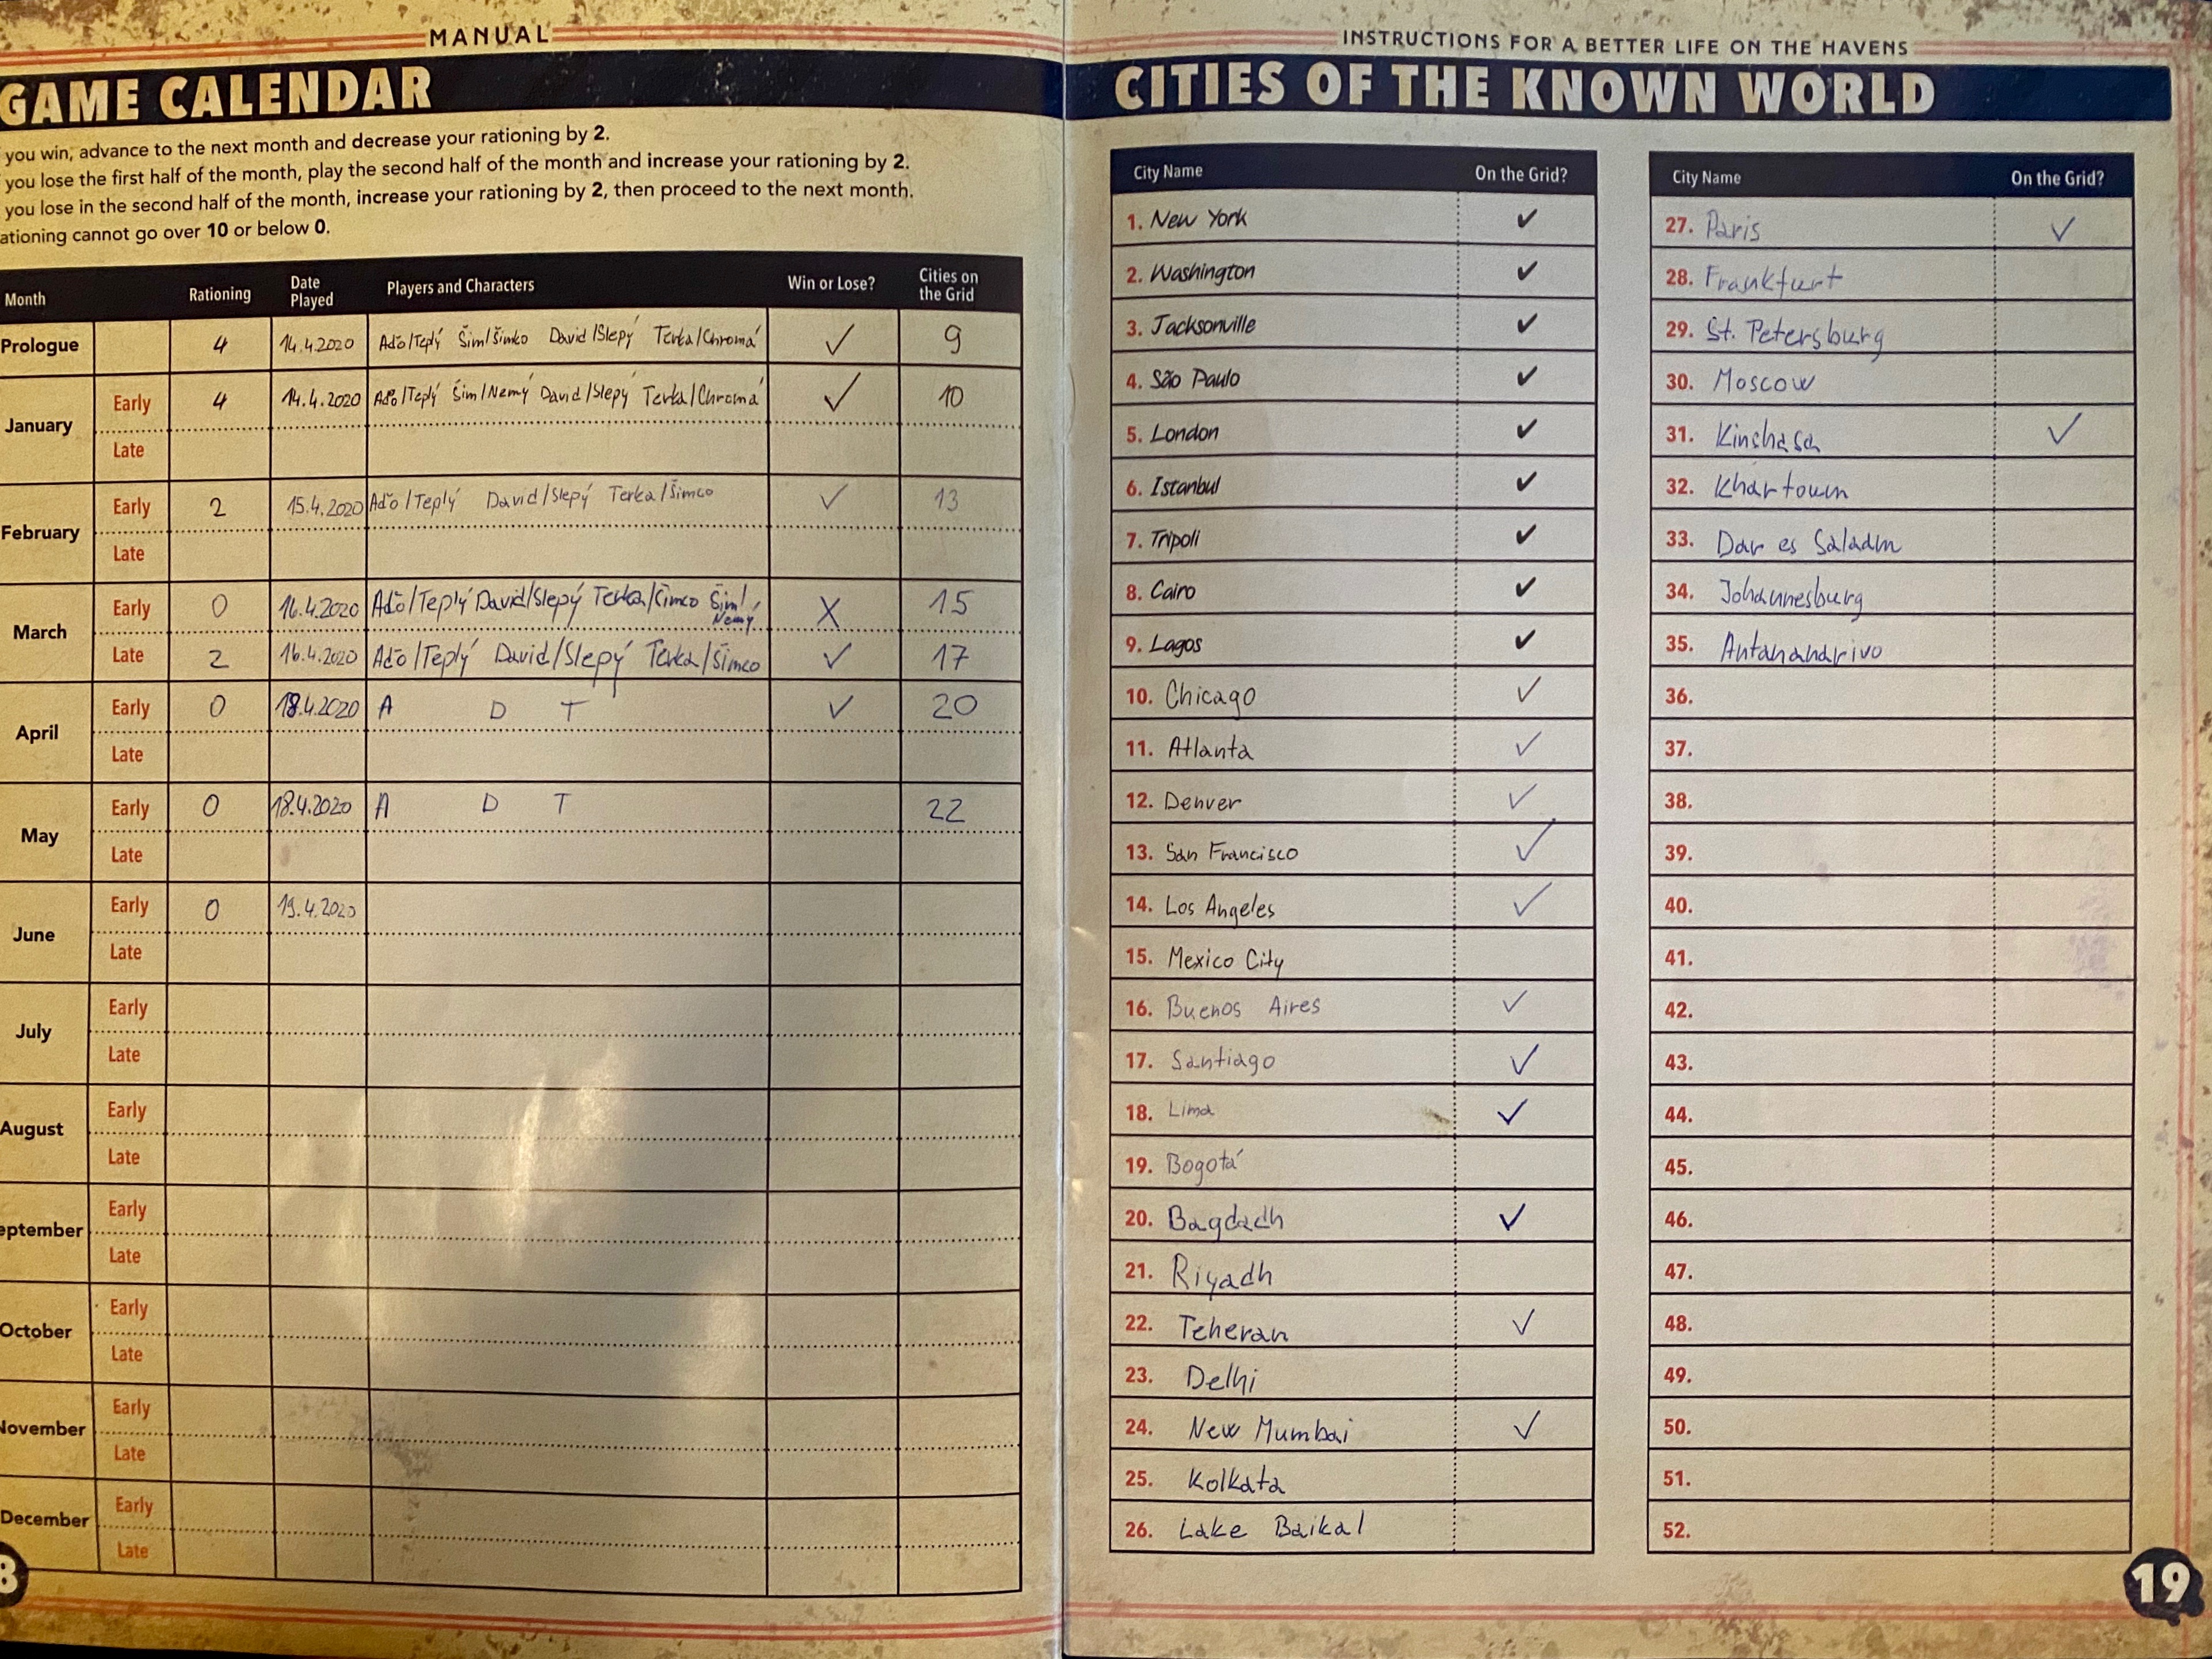 MANUAL
GAME CALENDAR
you win, advance to the next month and decrease your rationing by 2.
you lose the first half of the month, play the second half of the month and increase your rationing by 2.
you lose in the second half of the month, increase your rationing by 2, then proceed to the next month.
ationing cannot go over 10 or below 0.
Month Rationing Date Played Players and Characters Win or Lose? Cities on the Grid
Prologue 4 14.4.2020 Aďo/Teplý Šim/Šimko David/Slepý Terka/Chromá ✓ 9
January Early 4 14.4.2020 Aďo/Teplý Šim/Nemý David/Slepý Terka/Chromá ✓ 10
Late
February Early 2 15.4.2020 Aďo/Teplý David/Slepý Terka/Šimco ✓ 13
Late
March Early 0 16.4.2020 Aďo/Teplý David/Slepý Terka/Šimco Šim/Nemý X 15
Late 2 16.4.2020 Aďo/Teplý David/Slepý Terka/Šimco ✓ 17
April Early 0 18.4.2020 A D T ✓ 20
Late
May Early 0 18.4.2020 A D T 22
Late
June Early 0 19.4.2020
Late
July Early
Late
August Early
Late
eptember Early
Late
October Early
Late
November Early
Late
December Early
Late
8
INSTRUCTIONS FOR A BETTER LIFE ON THE HAVENS
CITIES OF THE KNOWN WORLD
City Name On the Grid?
1. New York ✓
2. Washington ✓
3. Jacksonville ✓
4. São Paulo ✓
5. London ✓
6. Istanbul ✓
7. Tripoli ✓
8. Cairo ✓
9. Lagos ✓
10. Chicago ✓
11. Atlanta ✓
12. Denver ✓
13. San Francisco ✓
14. Los Angeles ✓
15. Mexico City
16. Buenos Aires ✓
17. Santiago ✓
18. Lima ✓
19. Bogotá
20. Bagdadh ✓
21. Riyadh
22. Teheran ✓
23. Delhi
24. New Mumbai ✓
25. Kolkata
26. Lake Baikal
City Name On the Grid?
27. Paris ✓
28. Frankfurt
29. St. Petersburg
30. Moscow
31. Kinshasa ✓
32. Khartoum
33. Dar es Saladm
34. Johannesburg
35. Antananarivo
36.
37.
38.
39.
40.
41.
42.
43.
44.
45.
46.
47.
48.
49.
50.
51.
52.
19